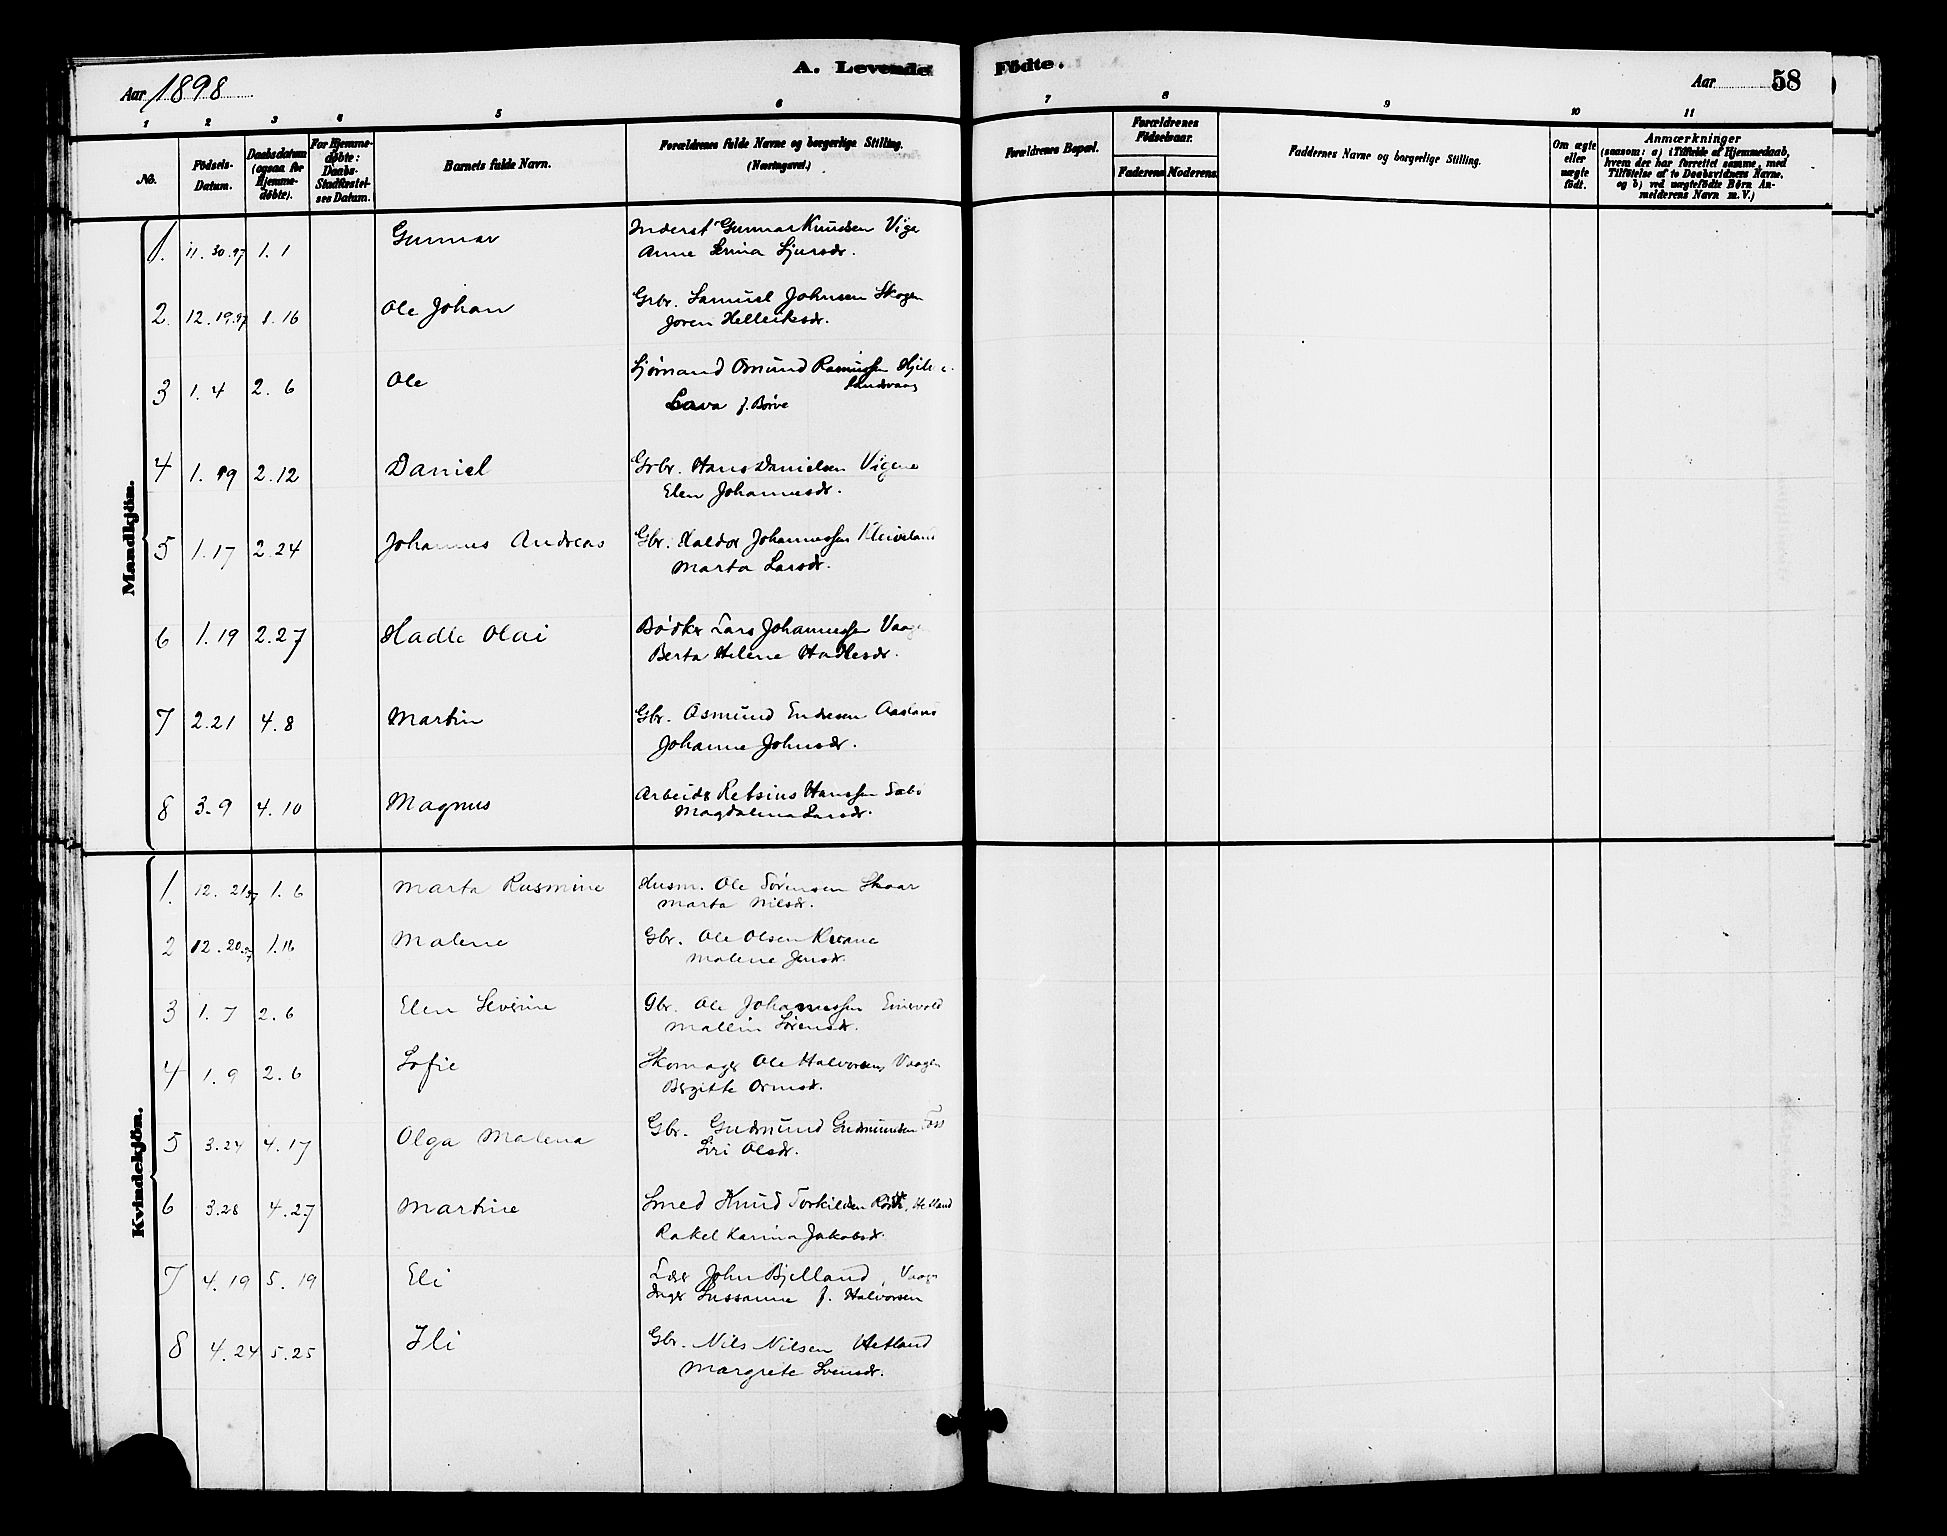 A. Levende Födte.
Aar 1898
Aar 58
1 2 3 4 5 6 7 8 9 10 11
No.
Födsels-Datum.
Daabsdatum (ogsaa for Hjemme-döbte).
For Hjemme-döbte: Daabs-Stadfæstel-ses Datum.
Barnets fulde Navn.
Forældrenes fulde Navne og borgerlige Stilling. (Næringsvei.)
Forældrenes Bopæl.
Forældrenes Födselsaar.
Faderens Moderens.
Faddernes Navne og borgerlige Stilling.
Om ægte eller uægte födt.
Anmærkninger
(saasom: a) i Tilfælde af Hjemmedaab,
hvem der har forrettet samme, med
Tilföielse af to Daabsvidners Navne,
og b) ved uægtefödte Börn An-
melderens Navn m. V.)
Mandkjön.
1. 11. 30. 97 1. 1 Gunnar Inderst Gunnar Knudsen Viga
Anne Serina Sjursdr.
2. 12. 19. 97 1. 16 Ole Johan Grbr. Samuel Johnsen Skogen
Joren Helleiksdr.
3 1. 4 2. 6 Ole Sjømand Osmund Rasmussen
landsvaag
Lava f. Børve
4 1. 19 2. 12 Daniel Grbr. Hans Danielsen Vigene
Elen Johannesdr.
5 1. 17 2. 24 Johannes Andreas Gbr. Haldor Johannessen Kleiveland
Marta Larsdr.
6 1. 19 2. 27 Hadle Olai Bødker Lars Johannessen Vaage
Berta Helene Hadlesdr.
7 2. 21 4. 8 Martin Gbr. Osmund Endresen Aasland
Johanne Johnsdr.
8 3. 9 4. 10 Magnus Arbeider Retsius Hanssen Sæbø
Magdalena Larsdr.
Kvindekjön.
1. 12. 21. 97 1. 6 Marta Rasmine Husm. Ole Sørensen Skaar
Marta Nilsdr.
2 12. 20. 97 1. 16 Malene Gbr. Ole Olsen
Malene Jensdr.
3 1. 7 2. 6 Elen Severine Gbr. Ole Johannessen
Mallin Sørensdr.
4 1. 9 2. 6 Sofie Skomager Ole Halvorsen, Vaagen
Bergitte Ormsdr.
5 3. 24 4. 17 Olga Malena Gbr. Gudmund Gudmundsen Foss
Siri Olsdr.
6 3. 28 4. 27 Martine Smed Knud Torkildsen Hetland
Rakel Karina Jakobsdr.
7 4. 19 5. 19 Eli Lærer John Bjelland, Vaage
Inger Sussanne f. Halvorsen
8 4. 24 5. 25 Ili Gbr. Nils Nilsen Hetland
Margrete Svensdr.